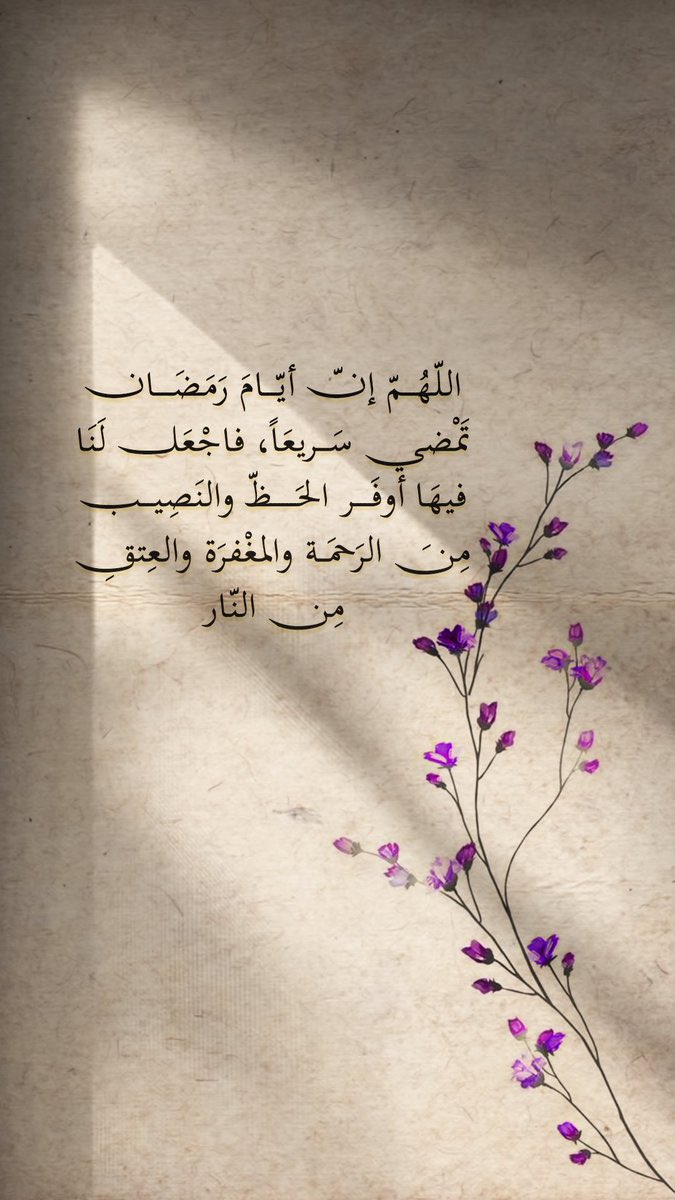 اللّهُمّ إنّ أيّامَ رَمَضَان
تَمْضي سَريعَاً، فاجْعَل لَنَا
فيهَا أوفَر الحَظّ والنَصِيب
مِنَ الرَحمَة والمغْفرَة والعِتقِ
مِن النّار